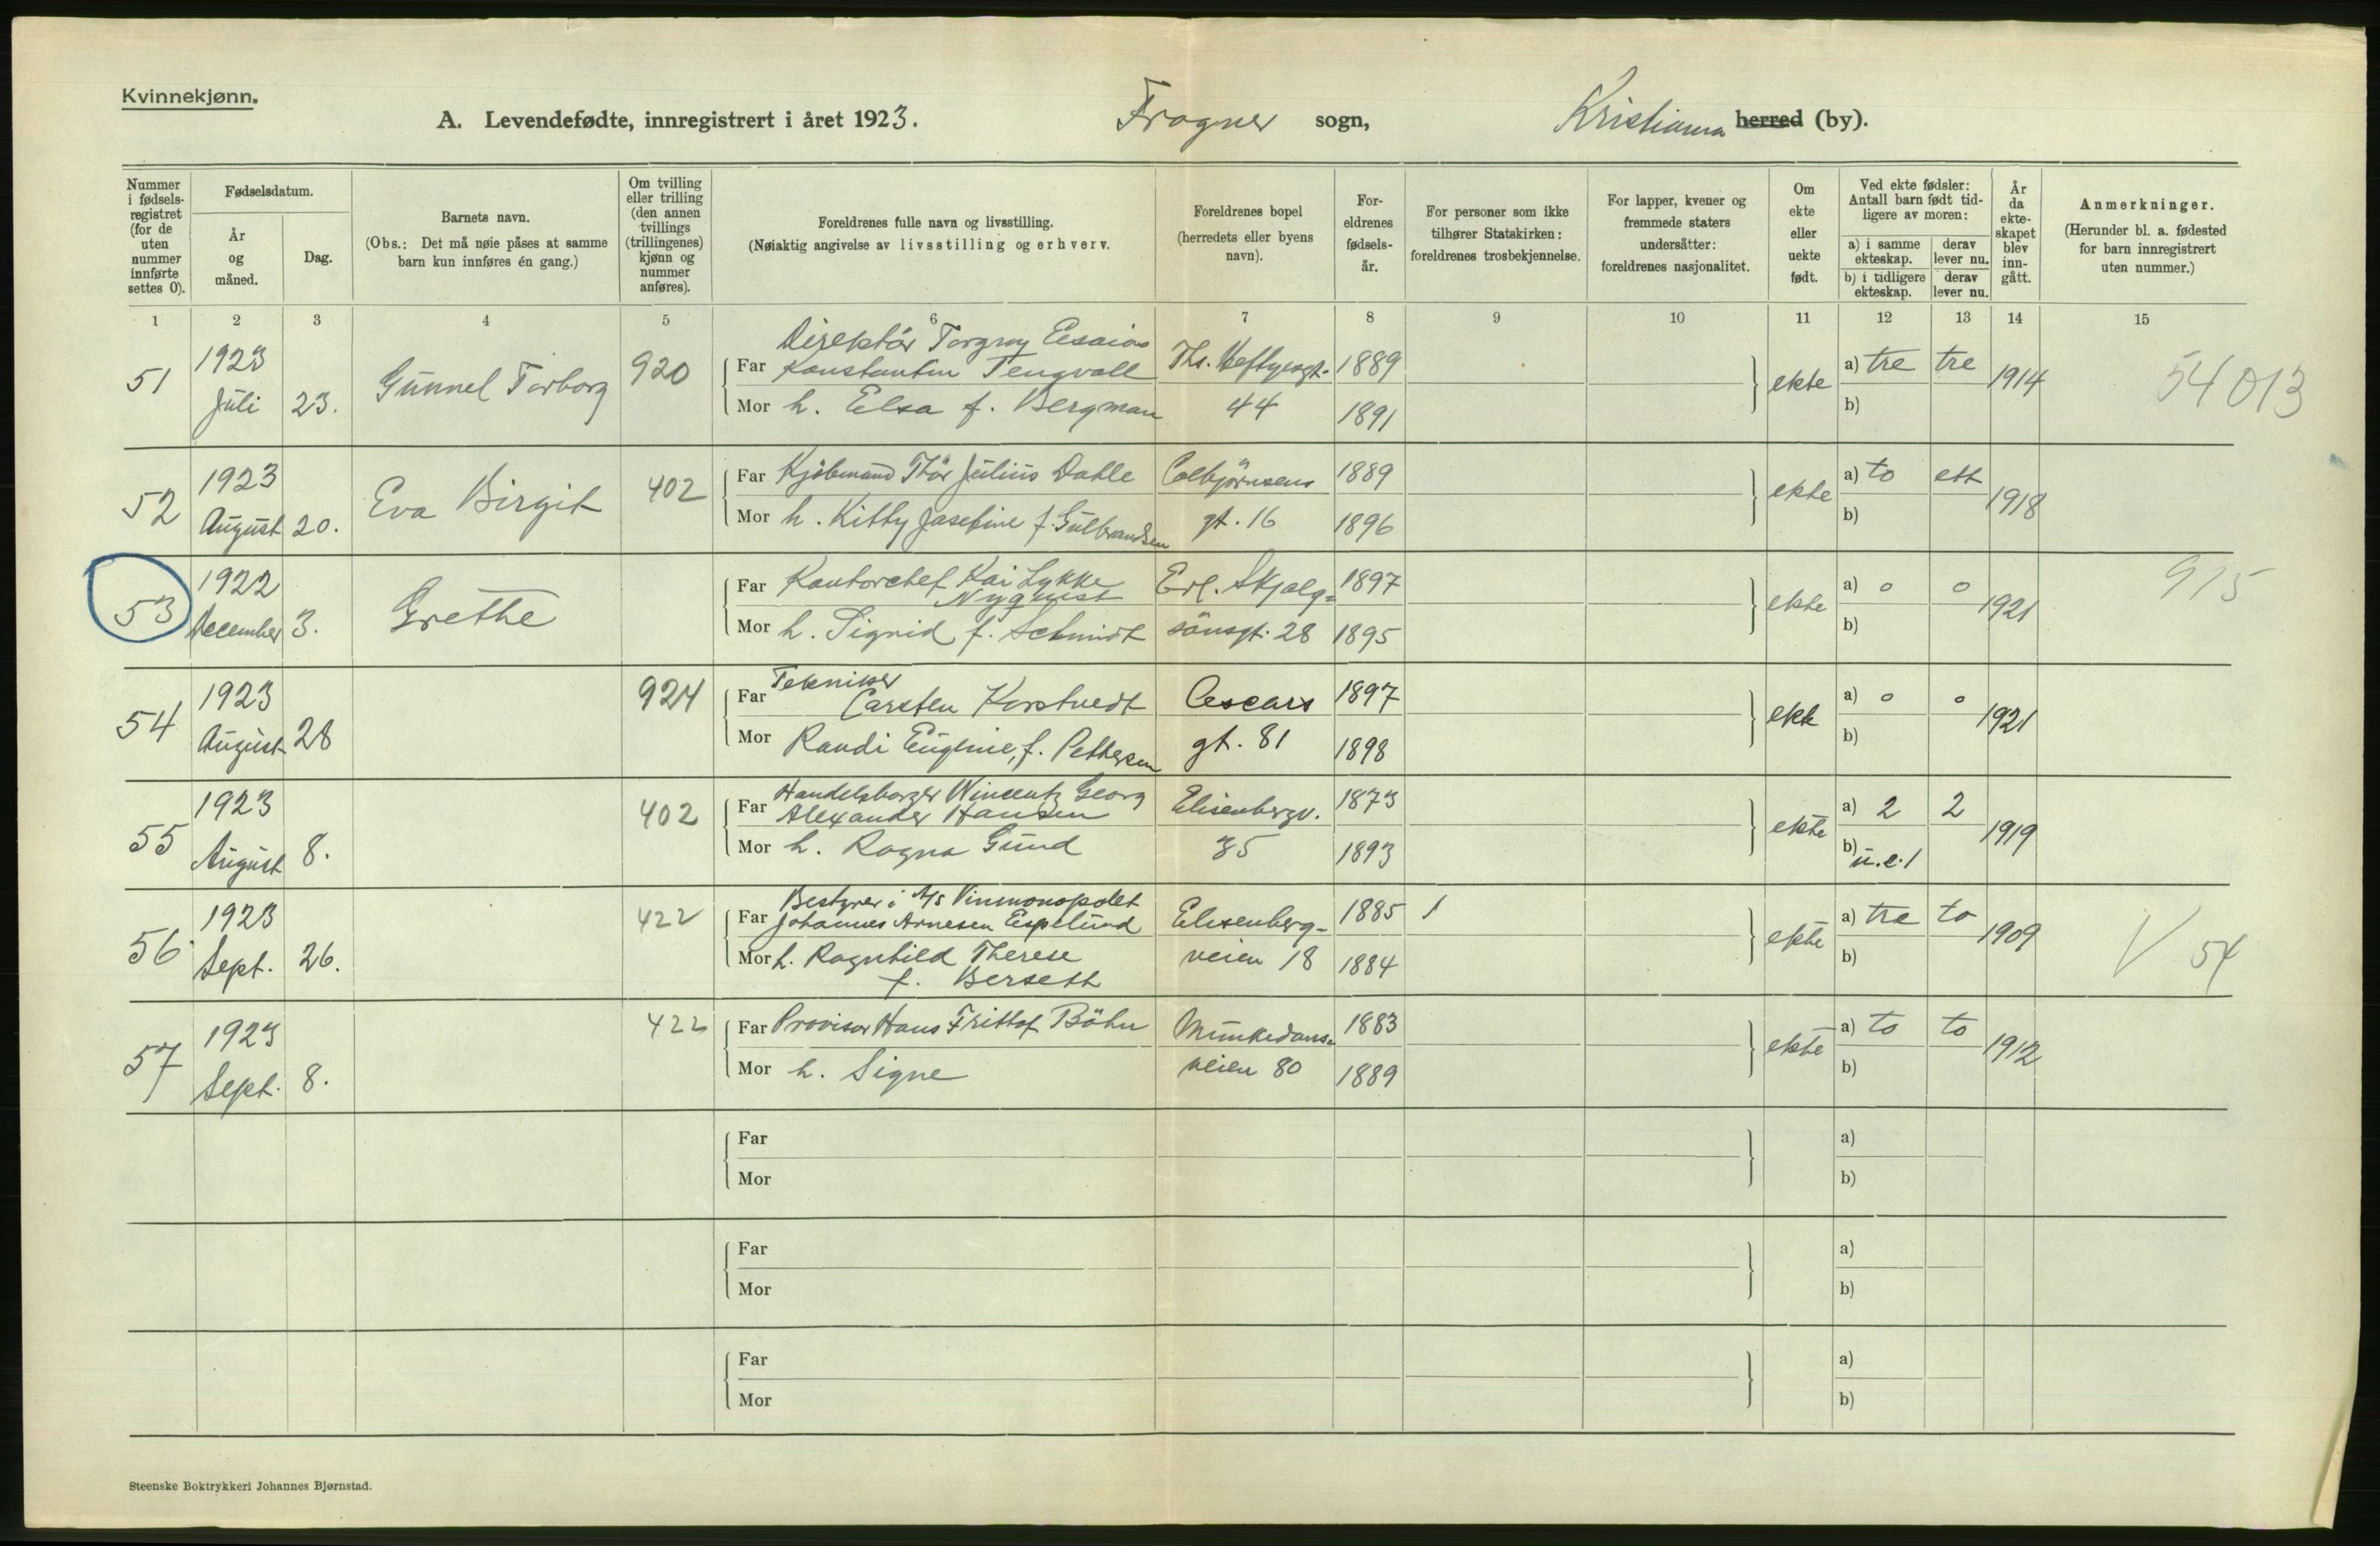 Kvinnekjønn.
A. Levendefødte, innregistrert i året 1923. Frogner sogn, Kristiania herred (by).
Nummer i fødsels-registret (for de uten nummer innførte settes 0).
Fødselsdatum.
År og måned.
Dag.
Barnets navn.
(Obs.: Det må nøie påses at samme barn kun innføres én gang.)
Om tvilling eller trilling (den annen tvillings (trillingenes) kjønn og nummer anføres).
Foreldrenes fulle navn og livsstilling.
(Nøiaktig angivelse av livsstilling og erhverv.
Foreldrenes bopel (herredets eller byens navn).
For-eldrenes fødsels-år.
For personer som ikke tilhører Statskirken: foreldrenes trosbekjennelse.
For lapper, kvener og fremmede staters undersåtter: foreldrenes nasjonalitet.
Om ekte eller uekte født.
Ved ekte fødsler: Antall barn født tid-ligere av moren:
a) i samme ekteskap. derav lever nu.
b) i tidligere ekteskap. derav lever nu.
År da ekte-skapet blev inn-gått.
Anmerkninger.
(Herunder bl. a. fødested for barn innregistrert uten nummer.)
1 2 3 4 5 6 7 8 9 10 11 12 13 14 15
51 1923 Juli 23. Gunnel Torborg 920
Direktör Torgny Esaias
Far Konstantin Tengvall Ths. Heftyesgt. 1889
Mor h. Elsa f. Bergman 44 1891
ekte a) tre tre 1914 54013
b)
52 1923 August 20. Eva Birgit 402
Far Kjöbmand Thör Julius Dahle Colbjörnsens 1889
Mor h. Kitty Josefine f. Gulbrandsen gt. 16 1896
ekte a) to ett 1918
b)
53 1922 December 3. Grethe
Far Kontorchef Kai Lykke Nyquist Erl. Skjalg- 1897
Mor h. Sigrid f. Schmidt sönsgt. 28 1895
ekte a) 0 0 1921 915
b)
54 1923 August 28 924
Tekniker
Far Carsten Korstvedt Oscars 1897
Mor Randi Eugenie, f. Pettersen gt. 81 1898
ekte a) 0 0 1921
b)
55 1923 August 8. 402
Handelsborger Wincentz Georg
Far Alexander Hansen Elisenbergv. 1873
Mor h. Ragna Gund 35 1893
ekte a) 2 2 1919
b) u.e. 1
56 1923 Sept. 26. 422
Bestyrer i A/s Vinmonopolet
Far Johannes Arnesen Espelund Elisenberg- 1885 1
Mor h. Ragnhild Therese veien 18 1884
f. Berseth
ekte a) tre to 1909 V 54
b)
57 1923 Sept. 8. 422
Far Provisor Hans Frittof Böhn Munkedams- 1883
Mor h. Signe veien 80 1889
ekte a) to to 1912
b)
Far a)
Mor b)
Far a)
Mor b)
Far a)
Mor b)
Steenske Boktrykkeri Johannes Bjørnstad.